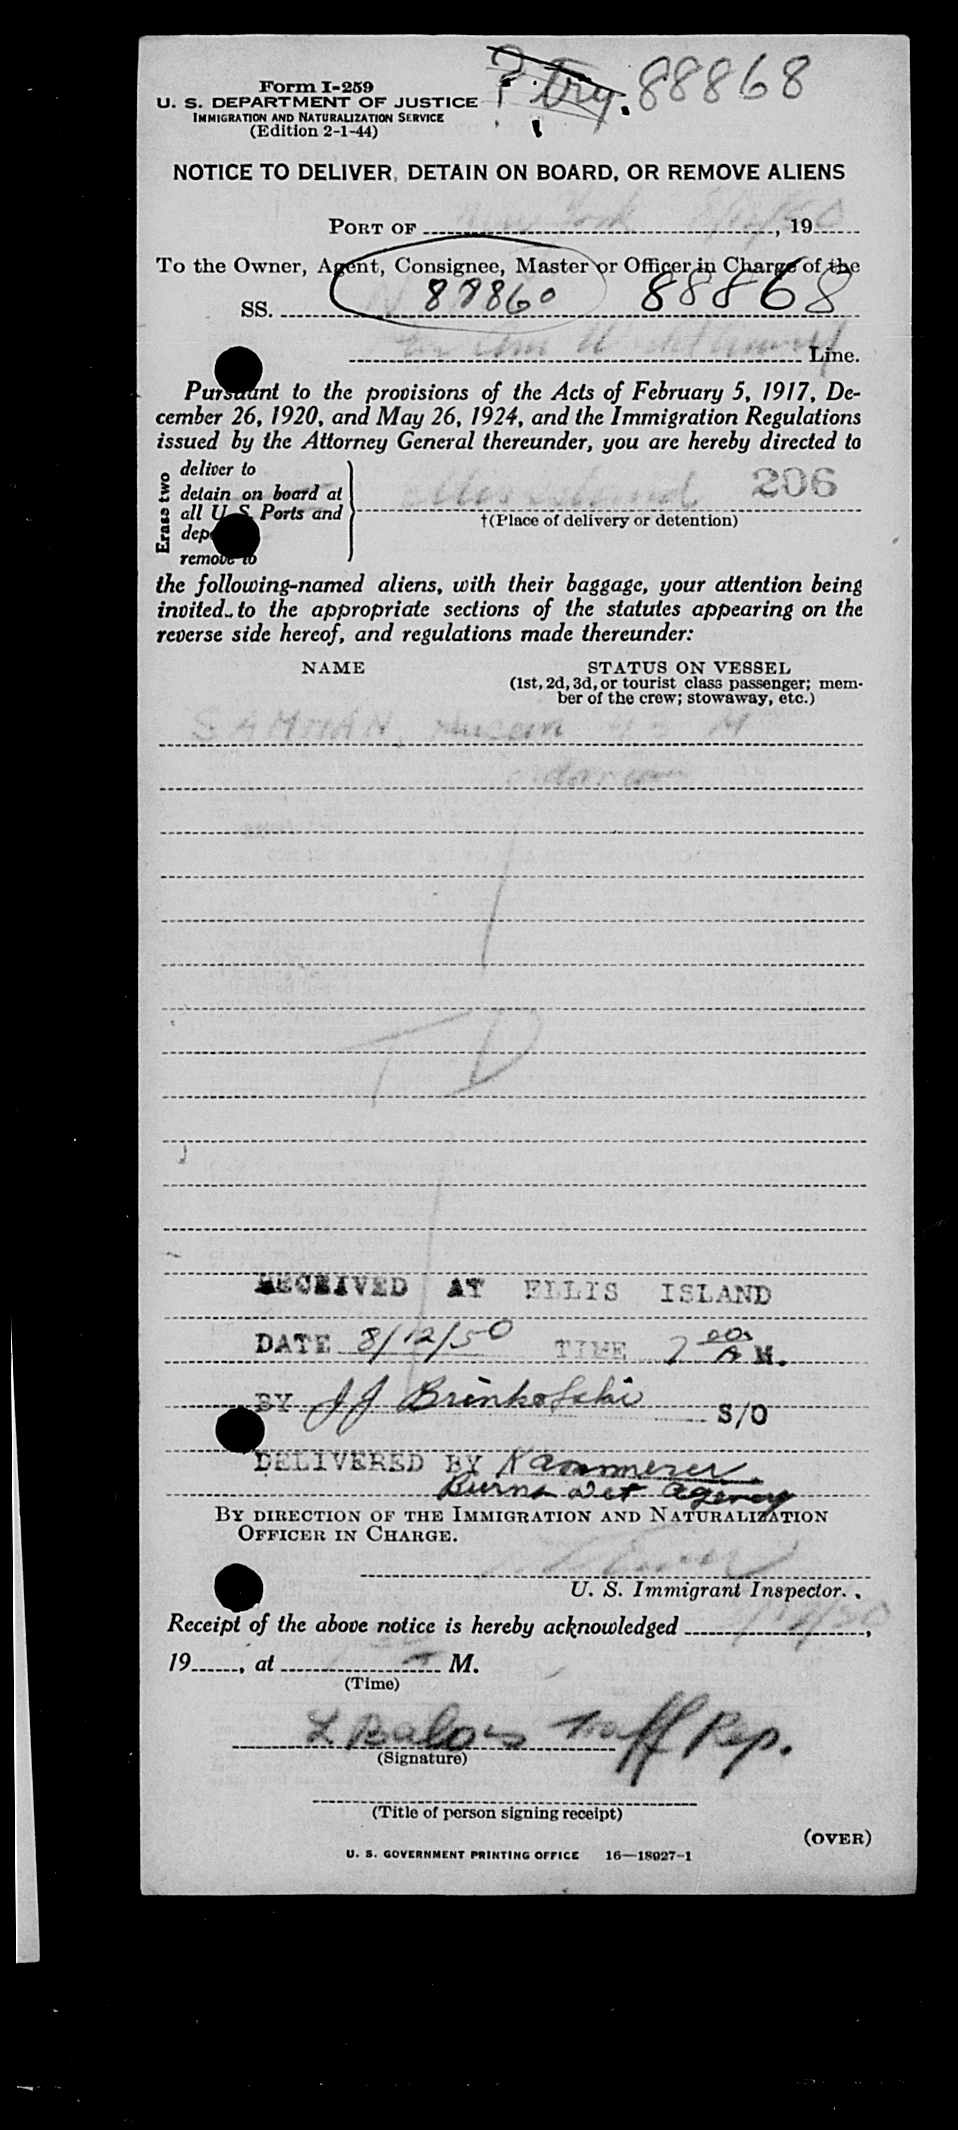 ? try. 88868
Form I-259
U. S. DEPARTMENT OF JUSTICE
IMMIGRATION AND NATURALIZATION SERVICE
(Edition 2-1-44)
NOTICE TO DELIVER, DETAIN ON BOARD, OR REMOVE ALIENS
PORT OF New York 8/12/50, 19
To the Owner, Agent, Consignee, Master or Officer in Charge of the
SS. 88860 88868
Line.
Pursuant to the provisions of the Acts of February 5, 1917, De-
cember 26, 1920, and May 26, 1924, and the Immigration Regulations
issued by the Attorney General thereunder, you are hereby directed to
Erase two
deliver to
detain on board at
all U. S. Ports and
remove to
Ellis Island 206
†(Place of delivery or detention)
the following-named aliens, with their baggage, your attention being
invited to the appropriate sections of the statutes appearing on the
reverse side hereof, and regulations made thereunder:
NAME STATUS ON VESSEL
(1st, 2d, 3d, or tourist class passenger; mem-
ber of the crew; stowaway, etc.)
SAMMAN, 43 M
TD
RECEIVED AT ELLIS ISLAND
DATE 8/12/50 TIME 7 00 A M.
BY JJ Brinkofski S/O
DELIVERED BY Kammerer
Burns Det Agency
BY DIRECTION OF THE IMMIGRATION AND NATURALIZATION
OFFICER IN CHARGE.
U. S. Immigrant Inspector.
Receipt of the above notice is hereby acknowledged
19, at M.
(Time)
Traff Rep.
(Signature)
(Title of person signing receipt)
(OVER)
U. S. GOVERNMENT PRINTING OFFICE 16—18027-1